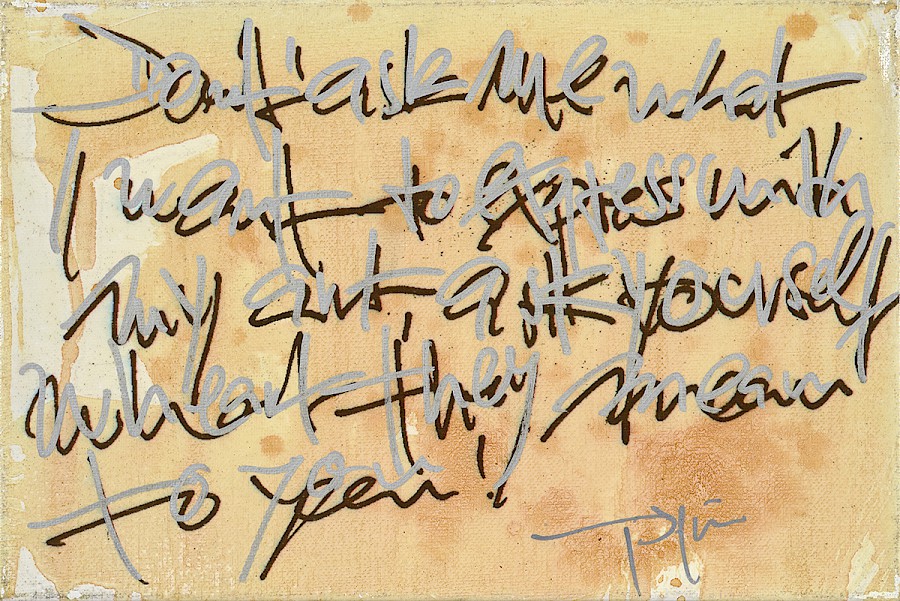 Dont' ask me what
I want to express with
my art ask yourself
what they mean
to you!